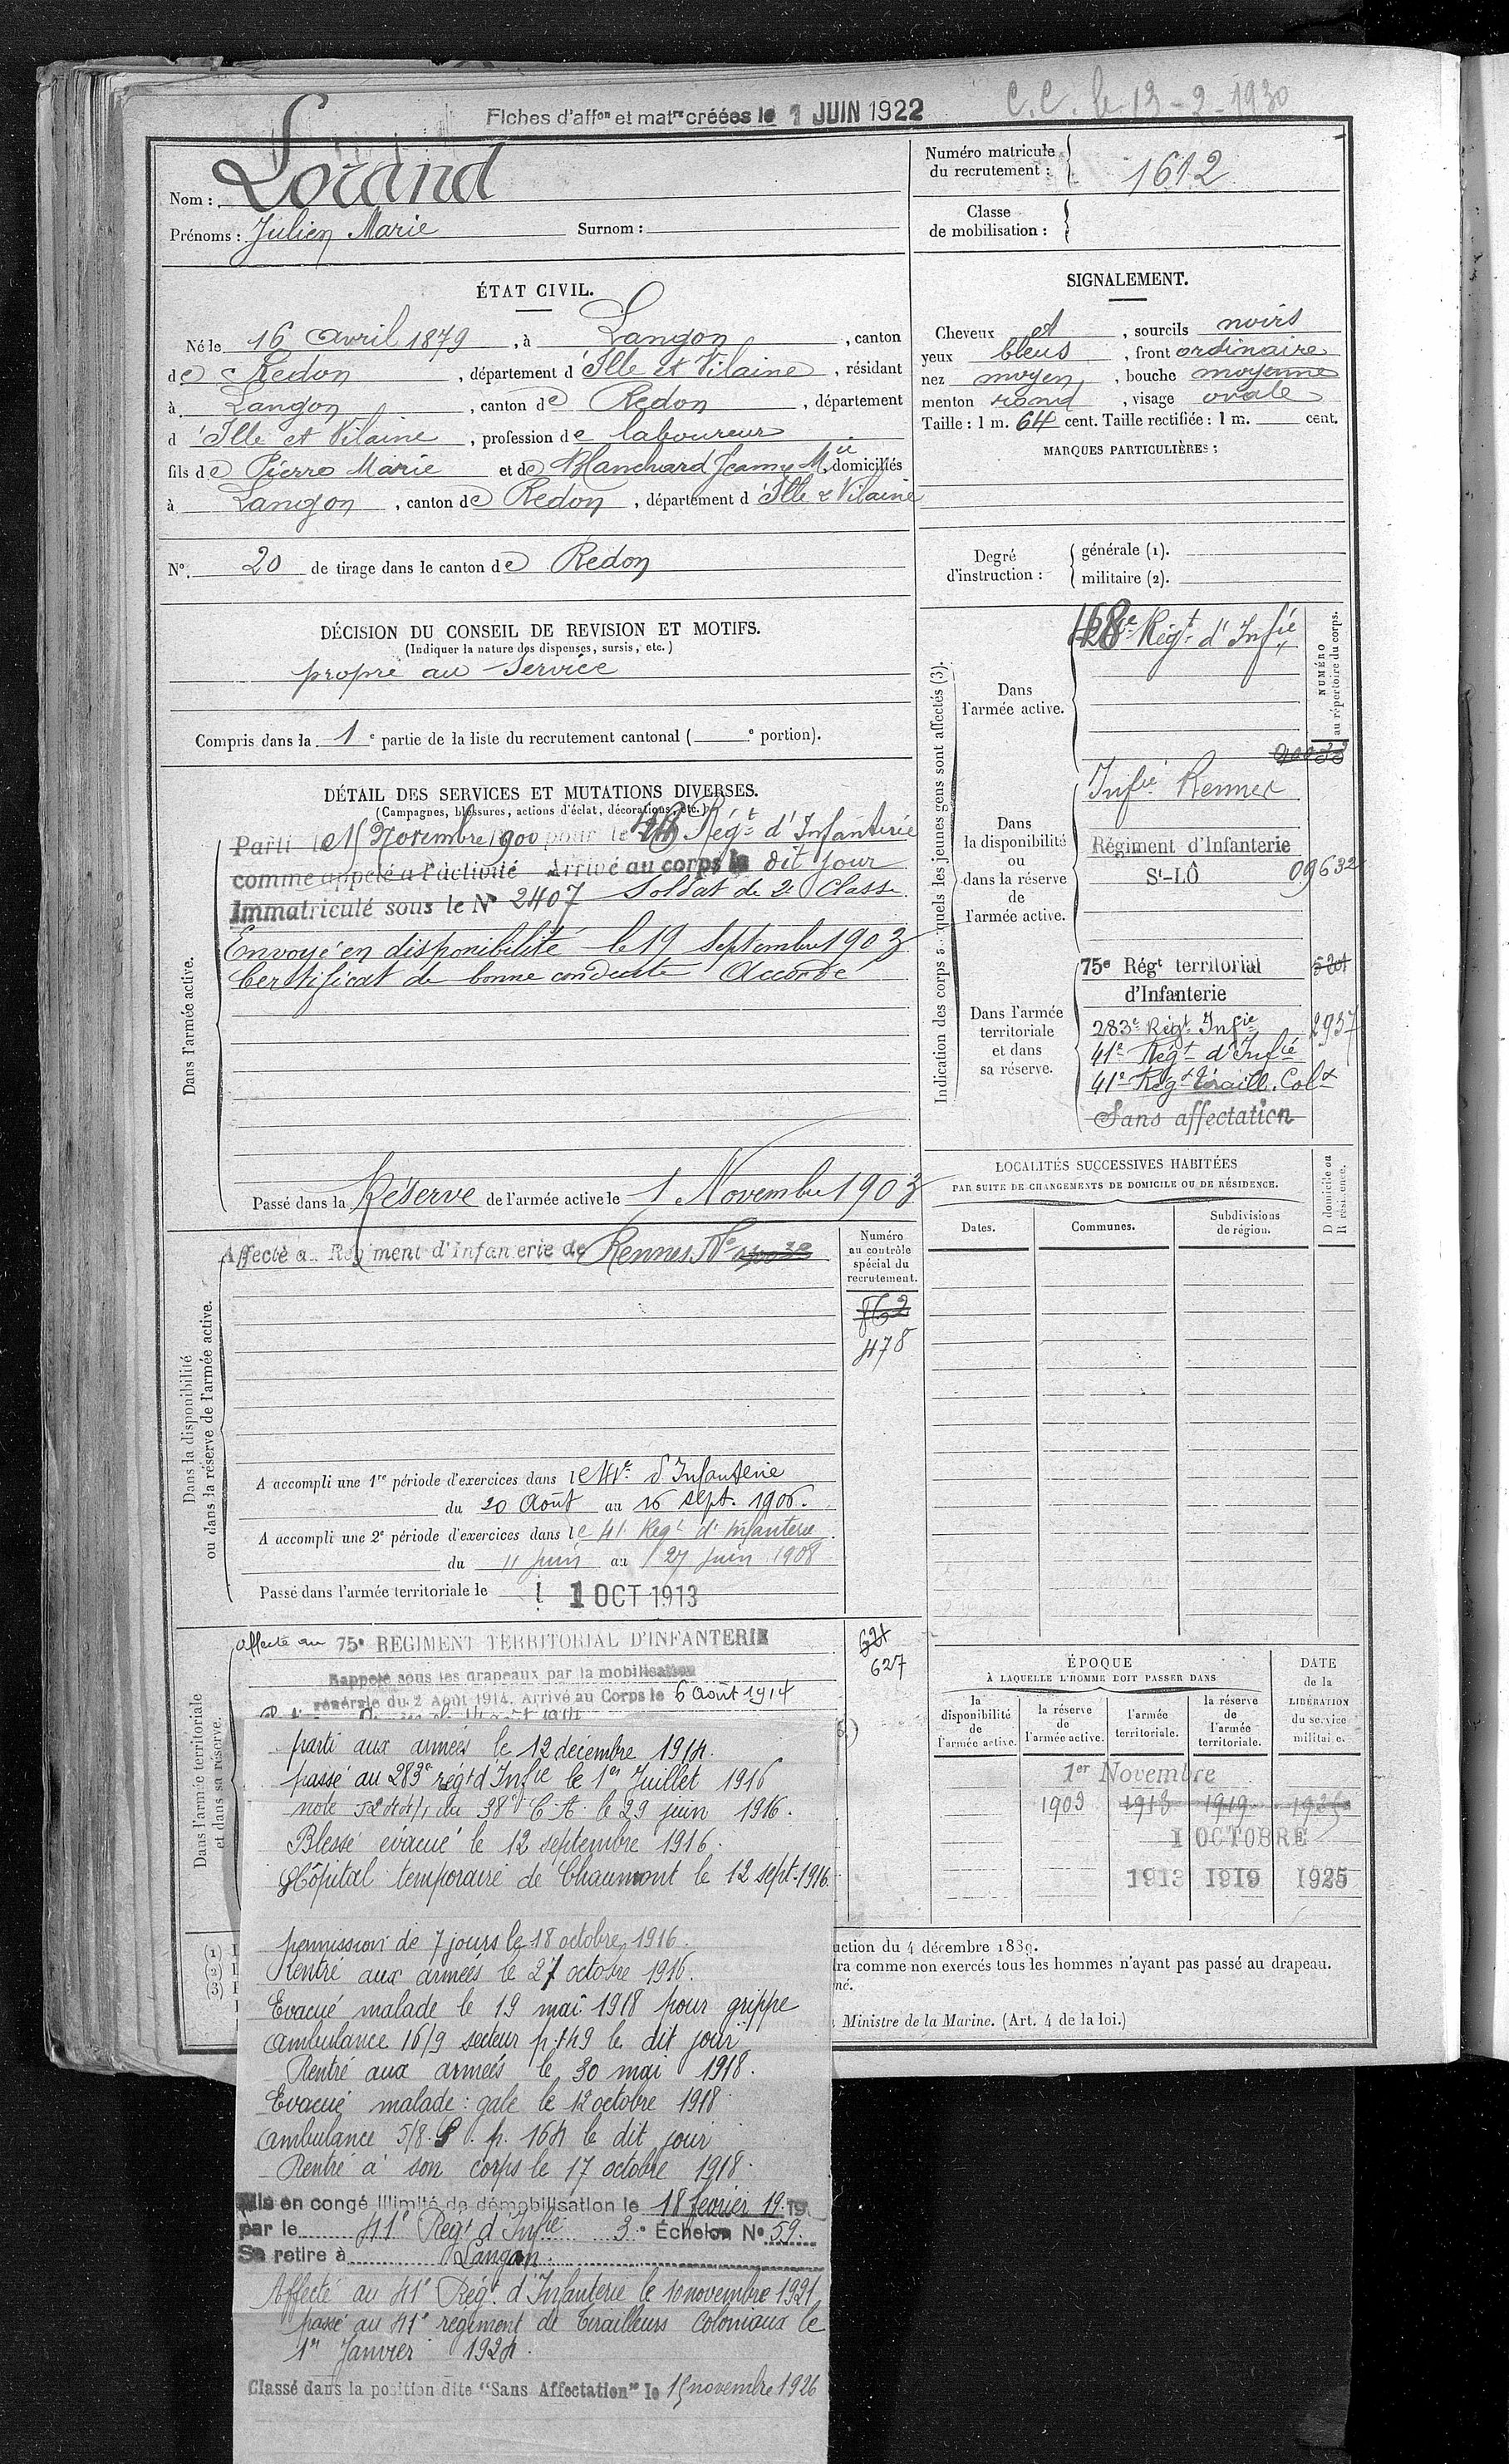 Fiches d'affon et matre créées le 1 JUIN 1922
C.C. le 13-2-1930
Nom : Lorand
Prénoms : Julien Marie Surnom :
Numéro matricule du recrutement : 1612
Classe de mobilisation :
ÉTAT CIVIL.
Né le 16 Avril 1879, à Langon, canton
de Redon, département d'Ille et Vilaine, résidant
à Langon, canton de Redon, département
d'Ille et Vilaine, profession de laboureur
fils de Pierre Marie et de Blanchard Jeanne Mie, domiciliés
à Langon, canton de Redon, département d'Ille & Vilaine
No. 20 de tirage dans le canton de Redon
SIGNALEMENT.
Cheveux et, sourcils noirs
yeux bleus, front ordinaire
nez moyen, bouche moyenne
menton rond, visage ovale
Taille : 1 m. 64 cent. Taille rectifiée : 1 m. cent.
MARQUES PARTICULIÈRES :
Degré d'instruction :
générale (1).
militaire (2).
DÉCISION DU CONSEIL DE REVISION ET MOTIFS.
(Indiquer la nature des dispenses, sursis, etc.)
propre au service
Compris dans la 1e partie de la liste du recrutement cantonal ( e portion).
DÉTAIL DES SERVICES ET MUTATIONS DIVERSES.
(Campagnes, blessures, actions d'éclat, décorations, etc.)
Dans l'armée active.
Parti le 15 Novembre 1900 pour le Régt d'Infanterie
comme appelé à l'activité Arrivé au corps le dit jour
Immatriculé sous le No 2407 Soldat de 2e Classe
Envoyé en disponibilité le 19 Septembre 1903
Certificat de bonne conduite Accordé
Passé dans la Réserve de l'armée active le 1 Novembre 1903
Dans la disponibilité ou dans la réserve de l'armée active.
Affecté au Régiment d'Infanterie de Rennes No
Numéro au contrôle spécial du recrutement.
478
A accompli une 1re période d'exercices dans le 41e d'Infanterie
du 20 Août au 16 sept. 1906.
A accompli une 2e période d'exercices dans le 41 Regt d'infanterie
du 11 juin au 27 juin 1908
Passé dans l'armée territoriale le 1 OCT 1913
Dans l'armée territoriale et dans sa réserve.
affecté au 75e REGIMENT TERRITORIAL D'INFANTERIE
621
627
Rappelé sous les drapeaux par la mobilisation
générale du 2 Août 1914. Arrivé au Corps le 6 août 1914
parti aux armées le 12 décembre 1914.
passé au 283e régt d'Infie le 1er Juillet 1916
note du 38e C.A. le 29 juin 1916.
Blessé évacué le 12 septembre 1916.
Hôpital temporaire de Chaumont le 12 sept. 1916.
permission de 7 jours le 18 octobre 1916.
Rentré aux armées le 27 octobre 1916.
Evacué malade le 19 mai 1918 pour grippe
ambulance 16/9 secteur p. 149 le dit jour
Rentré aux armées le 30 mai 1918.
Evacué malade : gale le 12 octobre 1918
ambulance 5/8. S. p. 164 le dit jour
Rentré à son corps le 17 octobre 1918.
Mis en congé illimité de démobilisation le 18 février 1919
par le 41e Régt d'Infie 3e Échelon No 59.
Se retire à Langon.
Affecté au 41e Régt. d'Infanterie le 10 novembre 1921
passé au 41e régiment de tirailleurs coloniaux le
1er Janvier 1924.
Classé dans la position dite "Sans Affectation" le 15 novembre 1926
Indication des corps auxquels les jeunes gens sont affectés (3).
NUMÉRO au répertoire du corps.
Dans l'armée active.
Régt d'Infie
Dans la disponibilité ou dans la réserve de l'armée active.
Infie Rennes
Régiment d'Infanterie
St-LÔ 09632
Dans l'armée territoriale et dans sa réserve.
75e Régt territorial
d'Infanterie
283e Régt Infie 2937
41e Régt d'Infie
41e Régt tiraill. Colx
Sans affectation
LOCALITÉS SUCCESSIVES HABITÉES
PAR SUITE DE CHANGEMENTS DE DOMICILE OU DE RÉSIDENCE.
Dates. Communes. Subdivisions de région. D domicile ou R résidence.
ÉPOQUE
À LAQUELLE L'HOMME DOIT PASSER DANS
DATE de la LIBÉRATION du service militaire.
la disponibilité de l'armée active. la réserve de l'armée active. l'armée territoriale. la réserve de l'armée territoriale.
1er Novembre
1903 1913 1919
1 OCTOBRE
1913 1919 1925
(1)
(2)
(3)
uction du 4 décembre 1889.
tra comme non exercés tous les hommes n'ayant pas passé au drapeau.
mé.
Ministre de la Marine. (Art. 4 de la loi.)